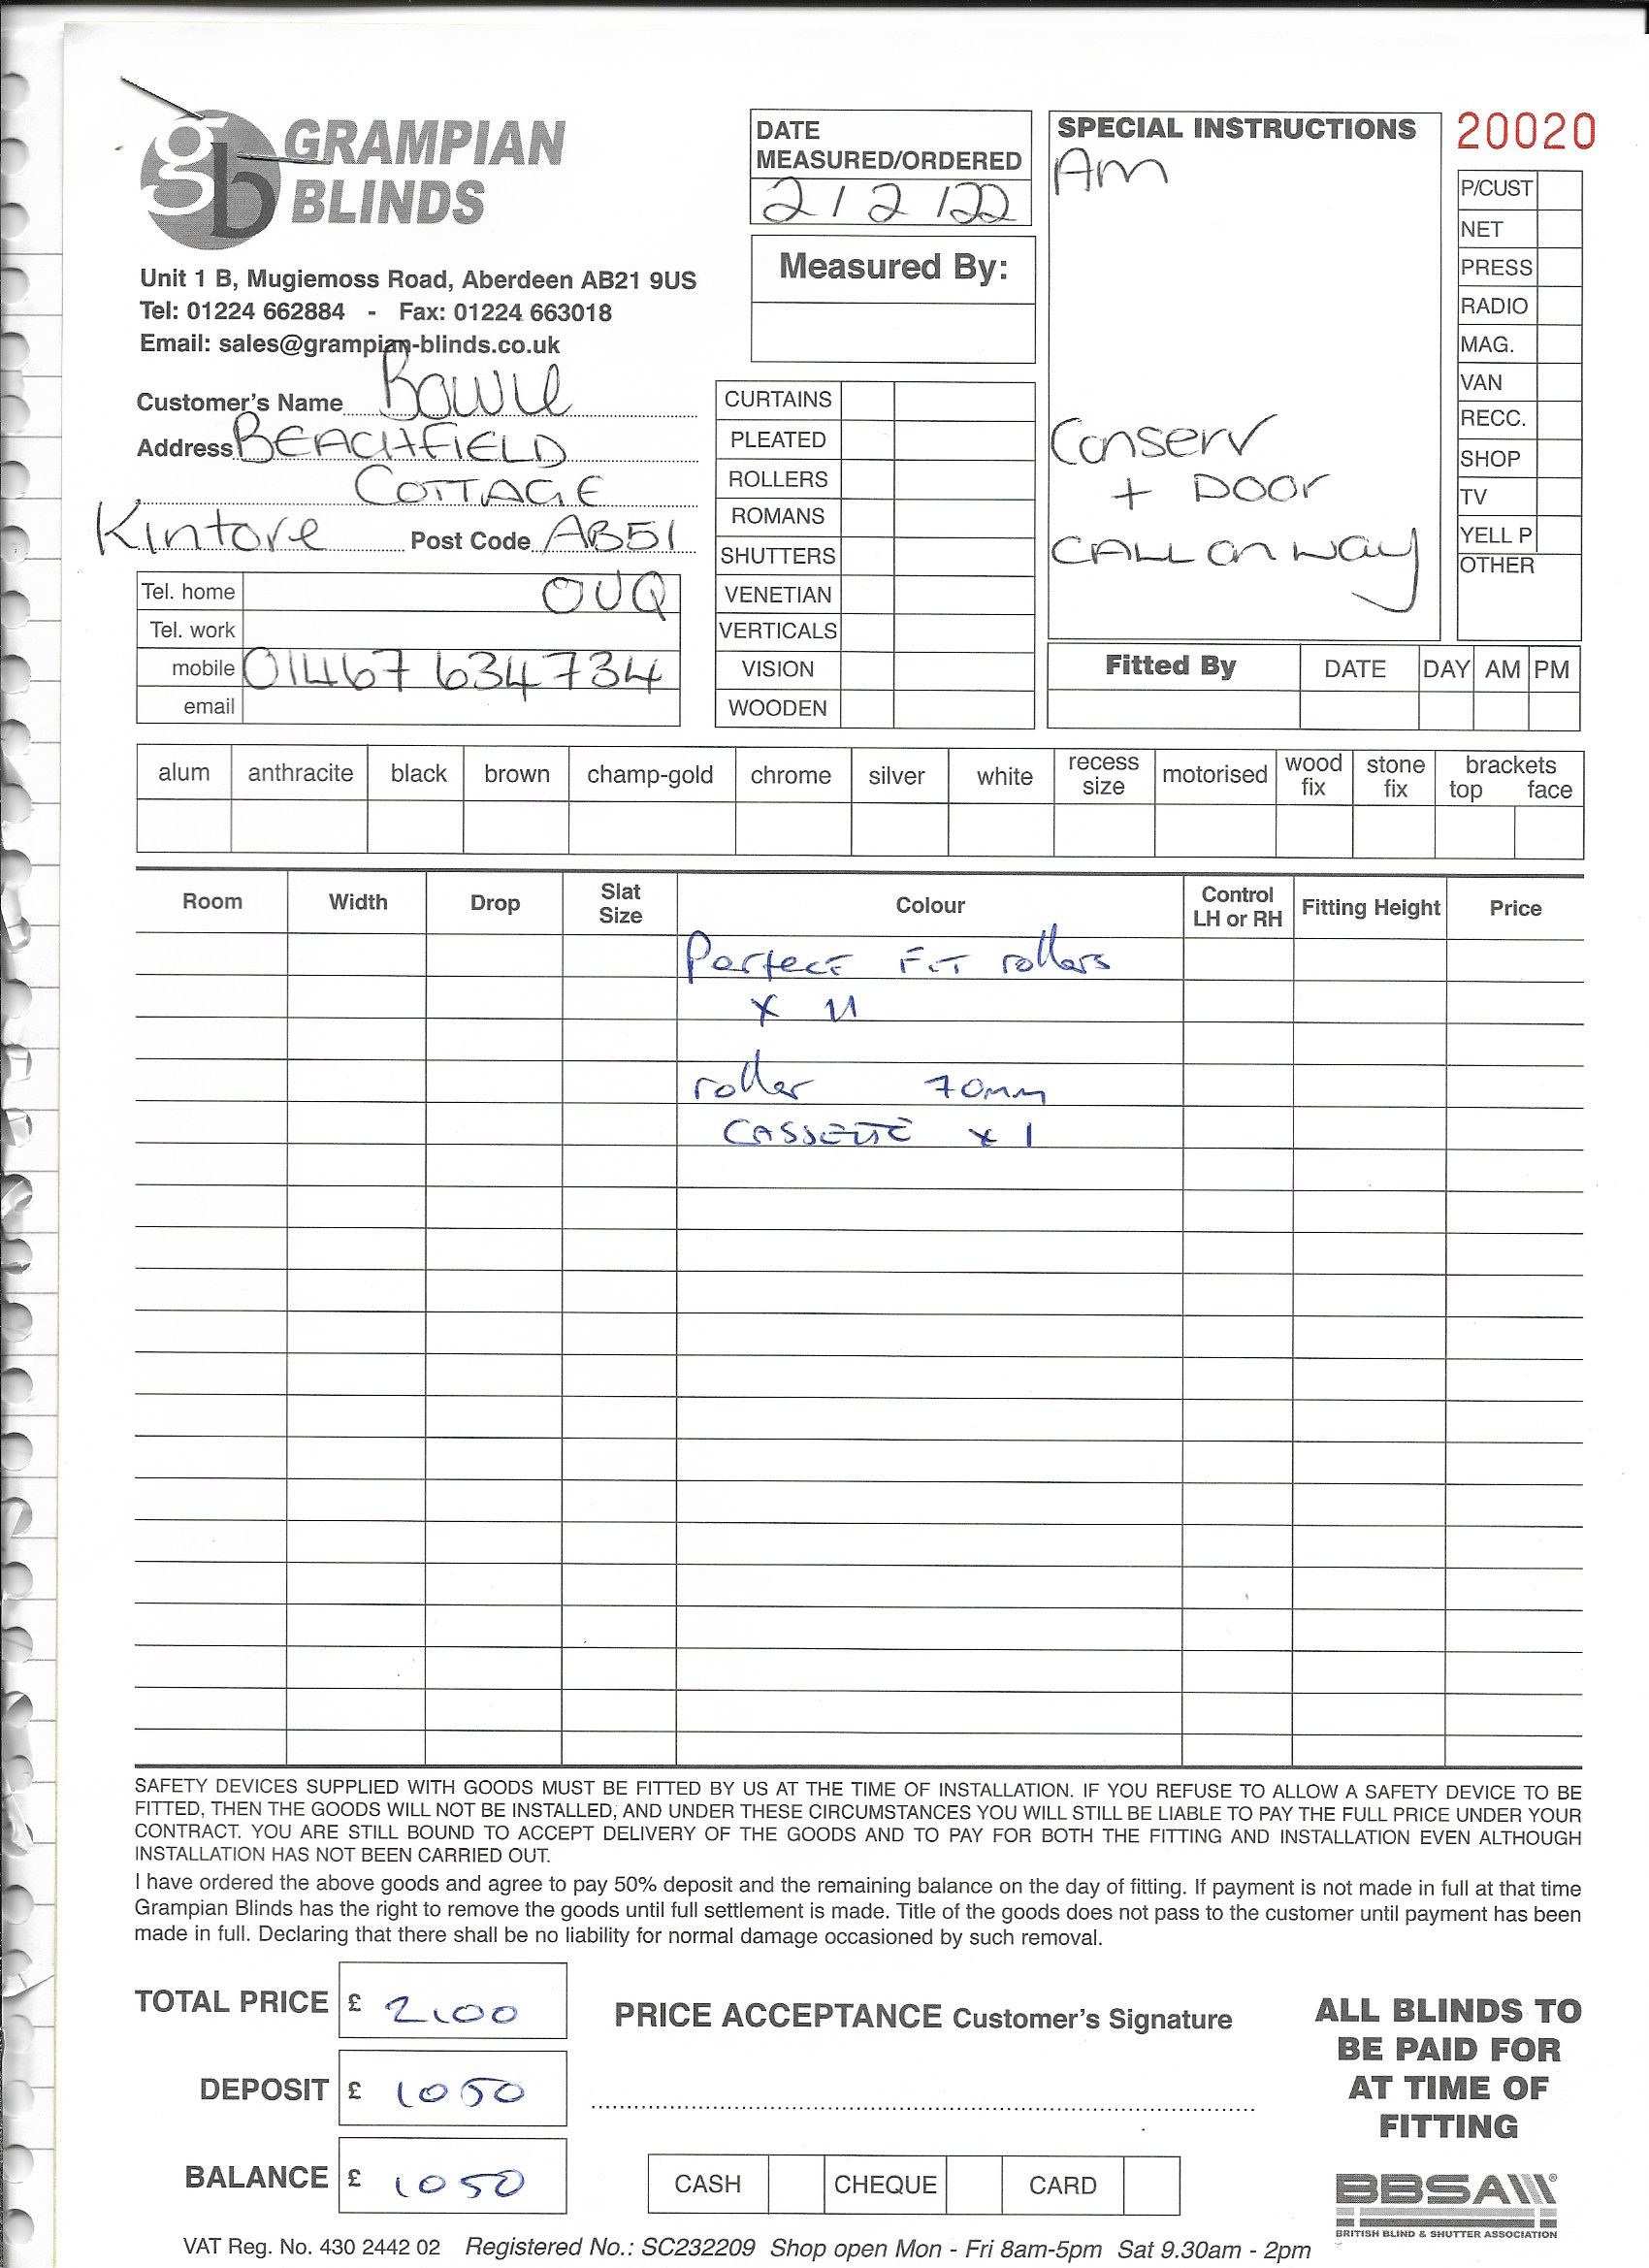 GRAMPIAN
BLINDS
Unit 1 B, Mugiemoss Road, Aberdeen AB21 9US
Tel: 01224 662884 - Fax: 01224 663018
Email: sales@grampian-blinds.co.uk
Customer's Name Bowie
Address BEACHFIELD
COTTAGE
Kintore Post Code AB51
Tel. home 0UQ
Tel. work
mobile 01467 634734
email
DATE
MEASURED/ORDERED
2/2/22
Measured By:
CURTAINS
PLEATED
ROLLERS
ROMANS
SHUTTERS
VENETIAN
VERTICALS
VISION
WOODEN
SPECIAL INSTRUCTIONS
Am
Conserv
+ DOOr
CALL on way
20020
P/CUST
NET
PRESS
RADIO
MAG.
VAN
RECC.
SHOP
TV
YELL P
OTHER
Fitted By DATE DAY AM PM
alum anthracite black brown champ-gold chrome silver white recess size motorised wood fix stone fix brackets top face
Room Width Drop Slat Size Colour Control LH or RH Fitting Height Price
Perfect Fit rollers
x 11
roller 70mm
CASSETTE x 1
SAFETY DEVICES SUPPLIED WITH GOODS MUST BE FITTED BY US AT THE TIME OF INSTALLATION. IF YOU REFUSE TO ALLOW A SAFETY DEVICE TO BE
FITTED, THEN THE GOODS WILL NOT BE INSTALLED, AND UNDER THESE CIRCUMSTANCES YOU WILL STILL BE LIABLE TO PAY THE FULL PRICE UNDER YOUR
CONTRACT. YOU ARE STILL BOUND TO ACCEPT DELIVERY OF THE GOODS AND TO PAY FOR BOTH THE FITTING AND INSTALLATION EVEN ALTHOUGH
INSTALLATION HAS NOT BEEN CARRIED OUT.
I have ordered the above goods and agree to pay 50% deposit and the remaining balance on the day of fitting. If payment is not made in full at that time
Grampian Blinds has the right to remove the goods until full settlement is made. Title of the goods does not pass to the customer until payment has been
made in full. Declaring that there shall be no liability for normal damage occasioned by such removal.
TOTAL PRICE £ 2100
DEPOSIT £ 1050
BALANCE £ 1050
PRICE ACCEPTANCE Customer's Signature
CASH CHEQUE CARD
ALL BLINDS TO
BE PAID FOR
AT TIME OF
FITTING
BBSA
BRITISH BLIND & SHUTTER ASSOCIATION
VAT Reg. No. 430 2442 02 Registered No.: SC232209 Shop open Mon - Fri 8am-5pm Sat 9.30am - 2pm